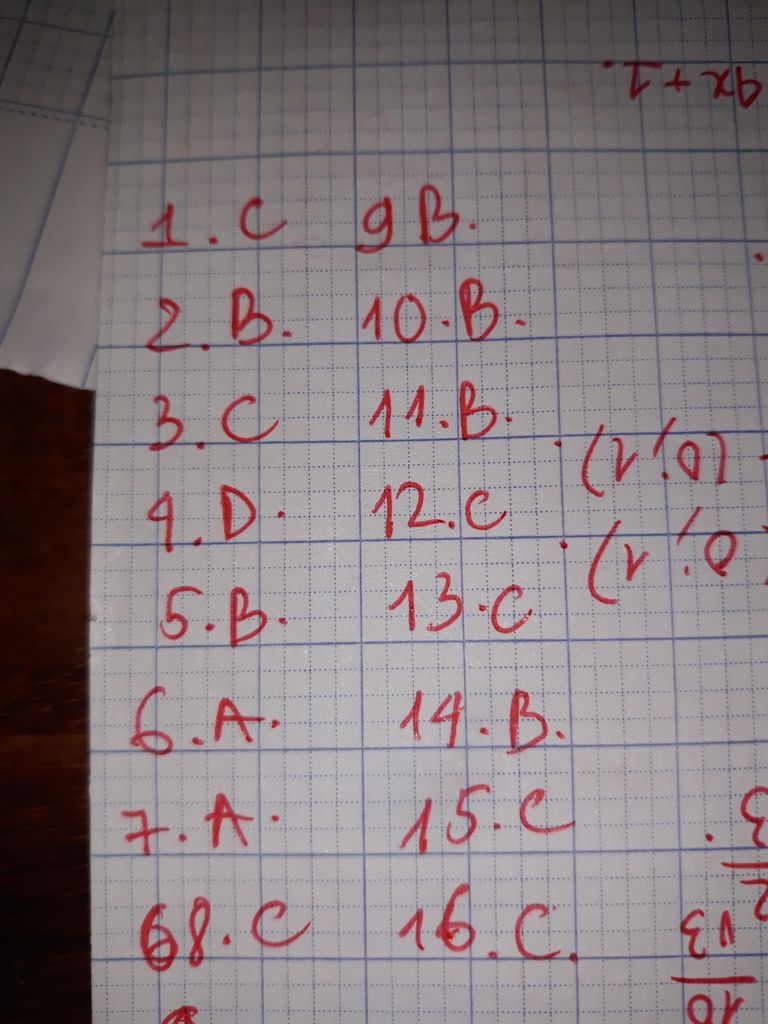 9x+1.
1. C 9 B.
2. B. 10. B.
3. C 11. B.
4. D. 12. C
5. B. 13. C
6. A. 14. B.
7. A. 15. C
68. C 16. C.